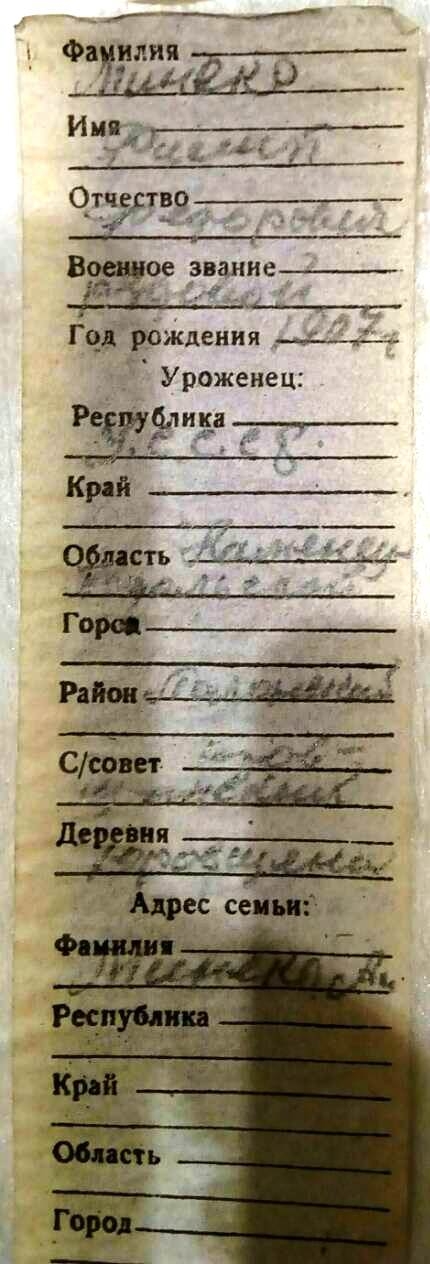 Фамилия
Миняко
Имя
Филип
Отчество
Федорович
Военное звание
рядовой
Год рождения 1907 г
Уроженец:
Республика
У.С.С.С.Р.
Край
Область Каменец
Подольской
Город
Район
С/совет
Деревня
Адрес семьи:
Фамилия
Миняко
Республика
Край
Область
Город